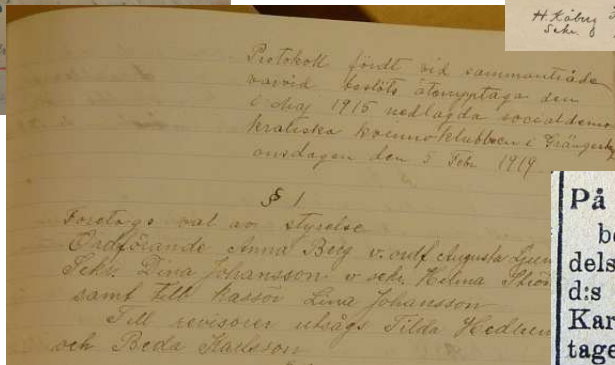 H. Kåberg
Sekr.
Protokoll fördt vid sammanträde
varvid beslöts återupptaga den
i Maj 1915 nedlagda socialdemo
kratiska kvinnoklubben i Grängesberg
onsdagen den 5 Febr 1919
§ 1
Företogs val av styrelse
Ordförande Anna Berg v. ordf Augusta
Sekr. Dina Johansson v sekr. Helma
samt till kassör Lina Johansson
Till revisorer utsågs Tilda
och Beda Karlsson
På
be
dels
d:s
Kar
tage